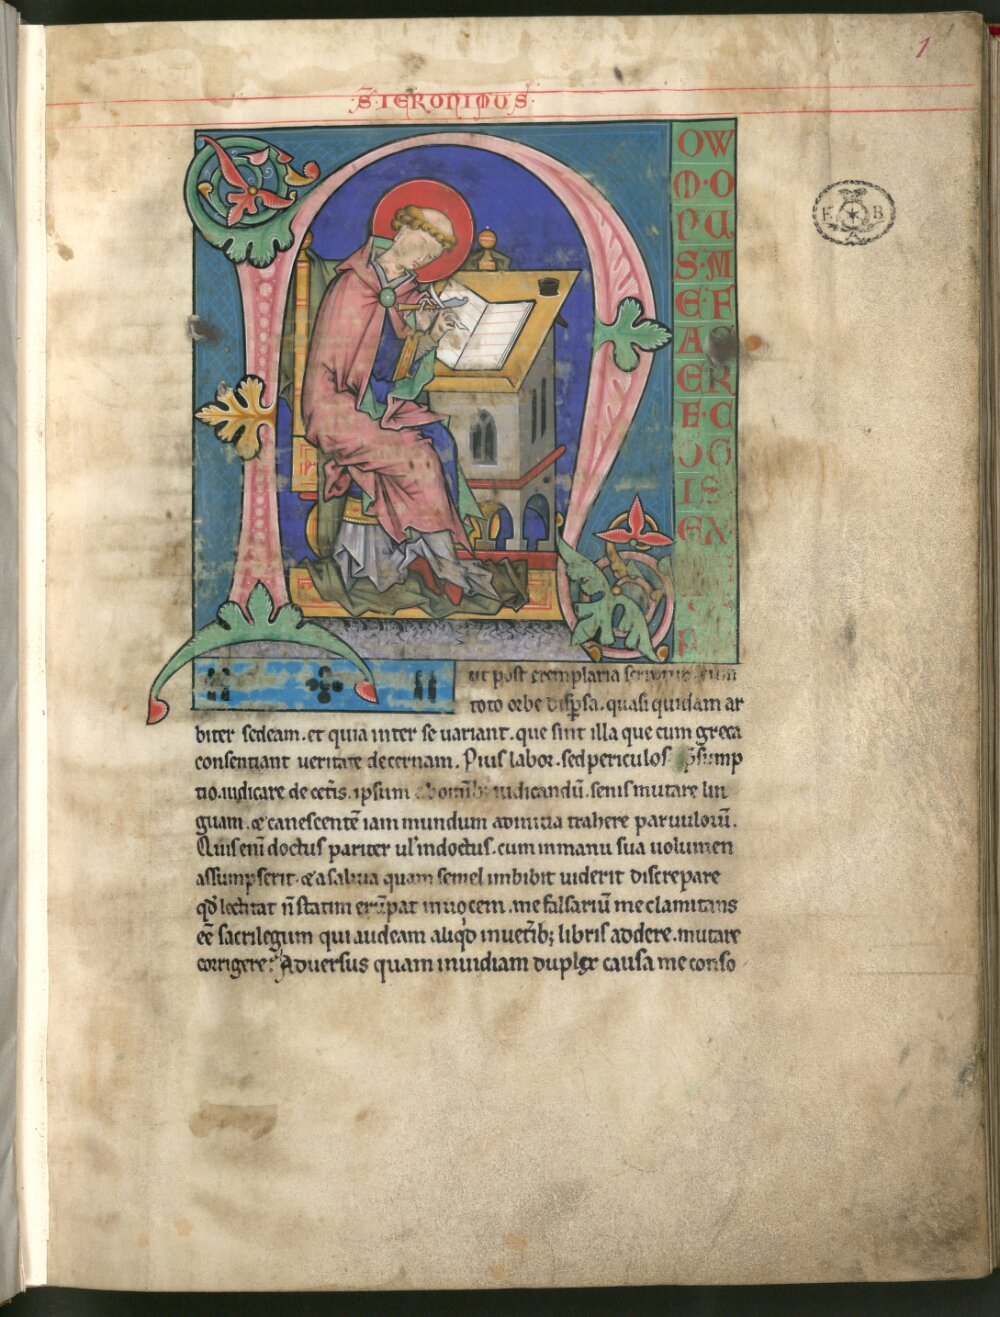 1
S. IERONIMUS
F. B.
N
OW
M·O
PU
S·M
E·F
A
ER
E·C
OG
IS
EX
P
ut post exemplaria
toto orbe dispsa. quasi quidam ar
biter sedeam. et quia inter se uariant. que sint illa que cum greca
consentiant ueritate decernam. Pius labor. sed periculosa psump
tio. iudicare de cetis. ipsum iudicandū. senis mutare lin
guam. & canescentē iam mundum ad initia trahere paruulorū.
Quis enī doctus pariter ul indoctus. cum in manu sua uolumen
assumpserit. & a saliua quam semel imbibit uiderit discrepare
qd lectitat n̄ statim erūpat in uocem. me falsariū me clamitans
eē sacrilegum qui audeam aliqd in uetibꝫ libris addere. mutare
corrigere? Aduersus quam inuidiam duplex causa me conso